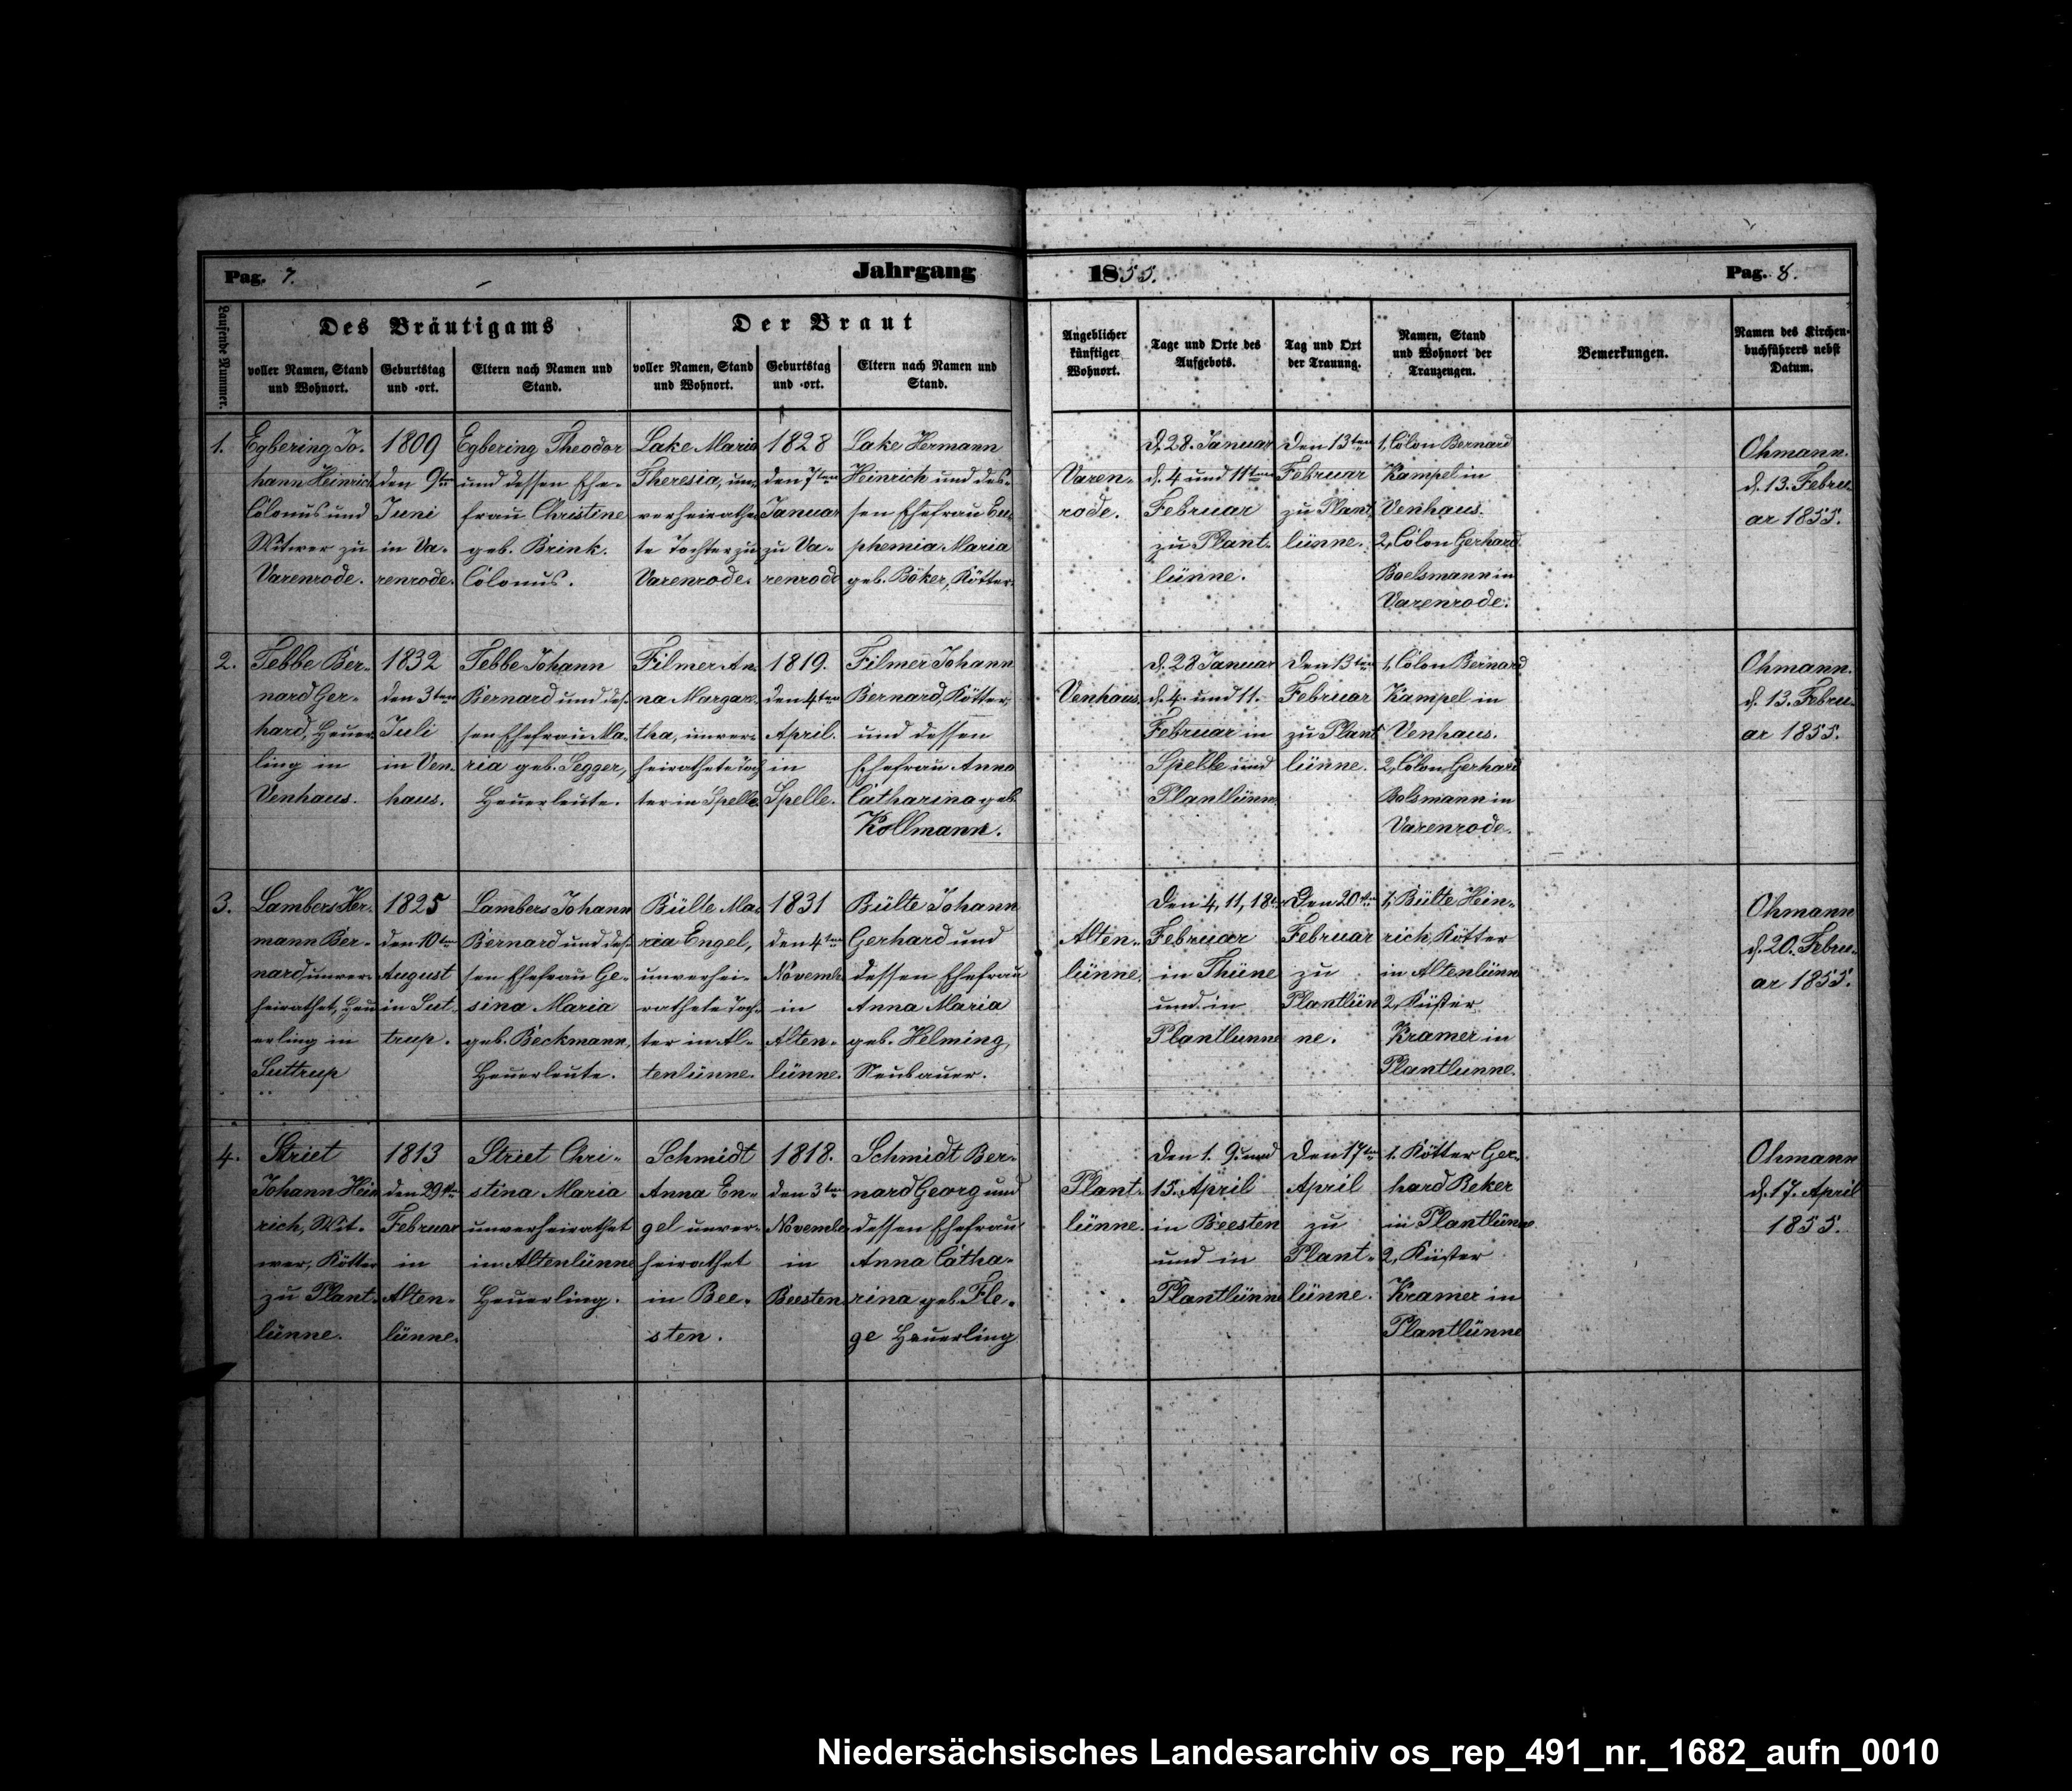 Pag. 7.
Jahrgang 1855.
Pag. 8.
Laufende Nummer.
Des Bräutigams
voller Namen, Stand
und Wohnort.
Geburtstag
und -ort.
Eltern nach Namen und
Stand.
Der Braut
voller Namen, Stand
und Wohnort.
Geburtstag
und -ort.
Eltern nach Namen und
Stand.
Angeblicher
künftiger
Wohnort.
Tage und Orte des
Aufgebots.
Tag und Ort
der Trauung.
Namen, Stand
und Wohnort der
Trauzeugen.
Bemerkungen.
Namen des Kirchen-
buchführers nebst
Datum.
1.
Egbering Jo-
hann Heinrich
Colonus und
Witwer zu
Varenrode.
1809
den 9ten
Juni
in Va-
renrode.
Egbering Theodor
und dessen Ehe-
frau Christine
geb. Brink.
Colonus.
Lake Maria
Theresia, un-
verheirathe-
te Tochter zu
Varenrode.
1828
den 7ten
Januar
zu Va-
renrode
Lake Hermann
Heinrich und des-
sen Ehefrau Eu-
phemia Maria
geb. Böker, Kötter.
Varen-
rode.
d. 28. Januar
d. 4 und 11ten
Februar
zu Plant-
lünne.
Den 13ten
Februar
zu Plant-
lünne.
1, Colon Bernard
Kampel in
Venhaus.
2, Colon Gerhard
Boelsmann in
Varenrode.
Ohmann.
d. 13. Febru-
ar 1855.
2.
Tebbe Ber-
nard Ger-
hard, Heuer-
ling in
Venhaus.
1832
den 3ten
Juli
in Ven-
haus.
Tebbe Johann
Bernard und des-
sen Ehefrau Ma-
ria geb. Segger,
Heuerleute.
Filmer An-
na Margare-
tha, unver-
heirathete Toch
ter in Spelle.
1819.
den 4ten
April.
in
Spelle.
Filmer Johann
Bernard, Kötter,
und dessen
Ehefrau Anna
Catharina geb.
Kollmann.
Venhaus.
d. 28 Januar
d. 4. und 11.
Februar in
Spelle und
Plantlünn
Den 13ten
Februar
zu Plant
lünne.
1, Colon Bernard
Kampel in
Venhaus.
2, Colon Gerhard
Bolsmann in
Varenrode.
Ohmann.
d. 13. Febru-
ar 1855.
3.
Lambers Her-
mann Ber-
nard unver-
heirathet, Heu
erling in
Suttrup
1825
den 10ten
August
in Sut-
trup.
Lambers Johann
Bernard und des-
sen Ehefrau Ge-
sina Maria
geb. Beckmann,
Heuerleute.
Bülte Ma-
ria Engel,
unverhei-
rathete Toch-
ter in Al-
tenlünne.
1831
den 4ten
Novemb.
in
Alten-
lünne.
Bülte Johann
Gerhard und
dessen Ehefrau
Anna Maria
geb. Helming,
Neubauer.
Alten-
lünne.
Den 4, 11, 18t.
Februar
in Thüne
und in
Plantlunne
Den 20ten
Februar
zu
Plantlün
ne.
1, Bülte Hein-
rich, Kötter
in Altenlünne
2, Küster
Kramer in
Plantlünne.
Ohmann
d. 20. Febru-
ar 1855.
4.
Striet
Johann Hein
rich, Wit-
wer, Kötter
zu Plant-
lünne.
1813
den 29ten
Februar
in
Alten-
lünne.
Striet Chri-
stina Maria
unverheirathet
in Altenlünne
Heuerling.
Schmidt
Anna En-
gel unver-
heirathet
in Bee-
sten.
1818.
den 3ten
Novembe
in
Beesten
Schmidt Ber-
nard Georg und
dessen Ehefrau
Anna Catha-
rina geb. Fle-
ge Heuerling
Plant-
lünne.
Den 1. 9. und
15. April
in Beesten
und in
Plantlünne
Den 17ten
April
zu
Plant-
lünne.
1. Kötter Ger-
hard Beker
in Plantlünne
2, Küster
Kramer in
Plantlünne
Ohmann
d. 17. April
1855.
Niedersächsisches Landesarchiv os_rep_491_nr._1682_aufn_0010